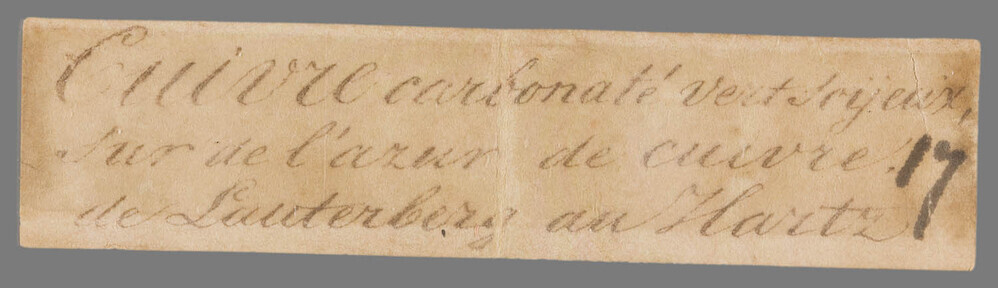 Cuivre carbonaté vert soijeux,
sur de l'azur de cuivre. 17
de Lauterberg au Hartz